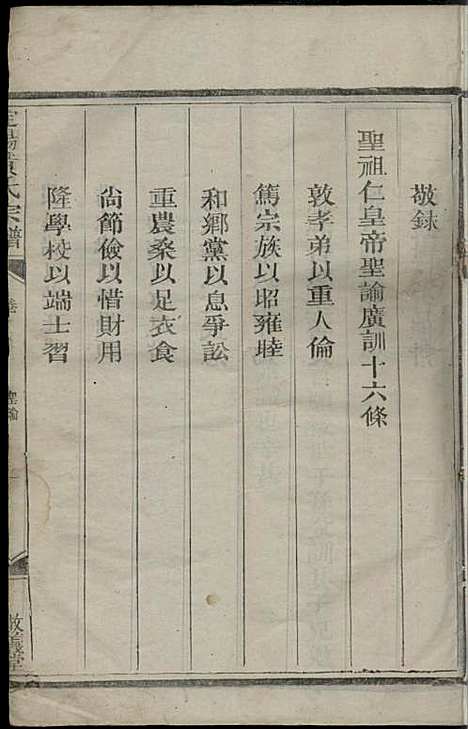 敬録
聖祖仁皇帝聖諭廣訓十六條
敦孝弟以重人倫
篤宗族以昭雍睦
和鄉黨以息爭訟
重農桑以足衣食
尙節儉以惜財用
隆學校以端士習
氏宗譜
卷
聖諭
敦義堂